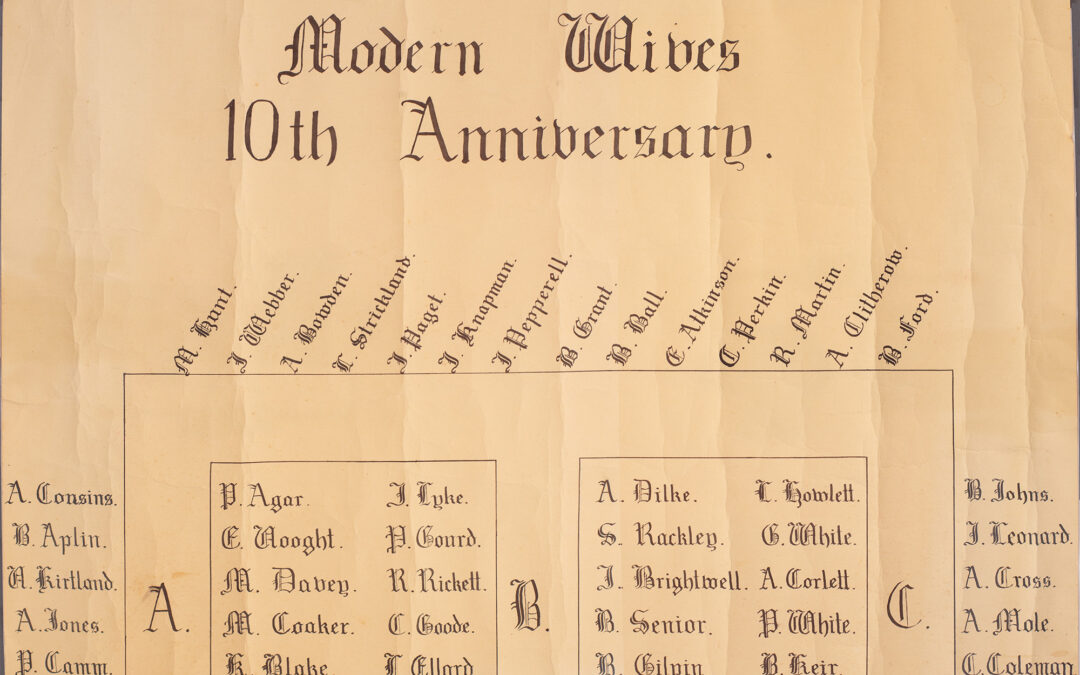 Modern Wives
10th Anniversary.
M. Hunt.
J. Webber.
A. Bowden.
L. Strickland.
J. Paget.
J. Knapman.
J. Pepperell.
B. Grant.
B. Ball.
E. Atkinson.
C. Perkin.
R. Martin.
A. Clitherow.
B. Ford.
A. Cousins. P. Agar. J. Lyke. A. Dilke. L. Howlett. B. Johns.
B. Aplin. E. Vooght. P. Gourd. S. Rackley. G. White. J. Leonard.
Kirtland. M. Davey. R. Rickett. J. Brightwell. A. Corlett. A. Cross.
A. B. C.
A. Jones. M. Coaker. C. Goode. B. Senior. P. White. A. Mole.
P. Camm. K. Blake Ellard B. Gilpin B. Keir. C. Coleman